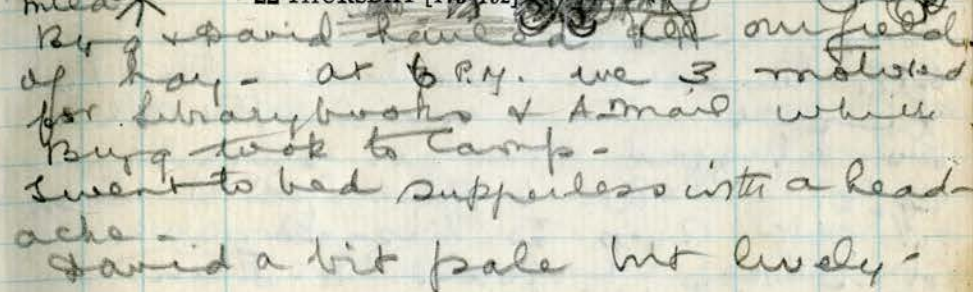 22 THURSDAY [173-192]
Byrg & David hauled our field
of hay - at 6 P.M. we 3 motored
for library books & A-mail which
Byrg took to Camp -
I went to bed supperless with a head-
ache -
David a bit pale but lively -